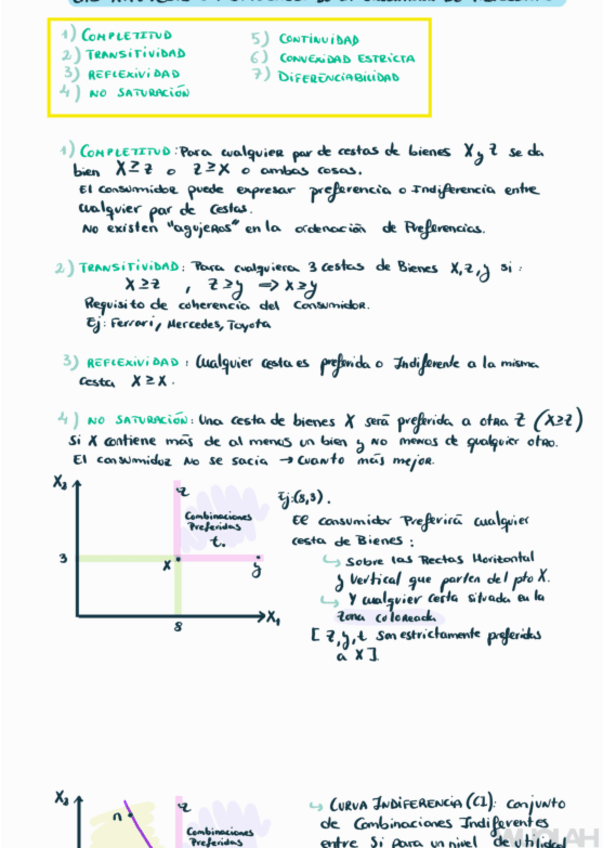 1) COMPLETITUD
2) TRANSITIVIDAD
3) REFLEXIVIDAD
4) NO SATURACIÓN
5) CONTINUIDAD
6) CONVEXIDAD ESTRICTA
7) DIFERENCIABILIDAD
1) COMPLETITUD: Para cualquier par de cestas de bienes X y Z se da
bien X ≥ Z o Z ≥ X o ambas cosas.
El consumidor puede expresar preferencia o Indiferencia entre
cualquier par de cestas.
No existen "agujeros" en la ordenación de Preferencias.
2) TRANSITIVIDAD: Para cualquiera 3 cestas de Bienes X, Z, y si:
X ≥ Z , Z ≥ y ⇒ X ≥ y
Requisito de coherencia del Consumidor.
Ej: Ferrari, Mercedes, Toyota
3) REFLEXIVIDAD: Cualquier cesta es preferida o Indiferente a la misma
cesta X ≥ X.
4) NO SATURACIÓN: Una cesta de bienes X será preferida a otra Z (X ≥ Z)
si X contiene más de al menos un bien y NO menos de qualquier otro.
El consumidor No se sacia → Cuanto más mejor.
X₂
Z
Combinaciones
Preferidas
t.
3
X
y
X₁
8
Ej: (8,3).
El consumidor Preferirá cualquier
cesta de Bienes:
↳ Sobre las Rectas Horizontal
y Vertical que parten del pto X.
↳ Y cualquier cesta situada en la
zona coloreada
[Z, y, t son estrictamente preferidas
a X]
X₂
Z
n
Combinaciones
Preferidas
↳ CURVA INDIFERENCIA (CI): conjunto
de Combinaciones Indiferentes
entre Si para un nivel de utilidad
WUOLAH